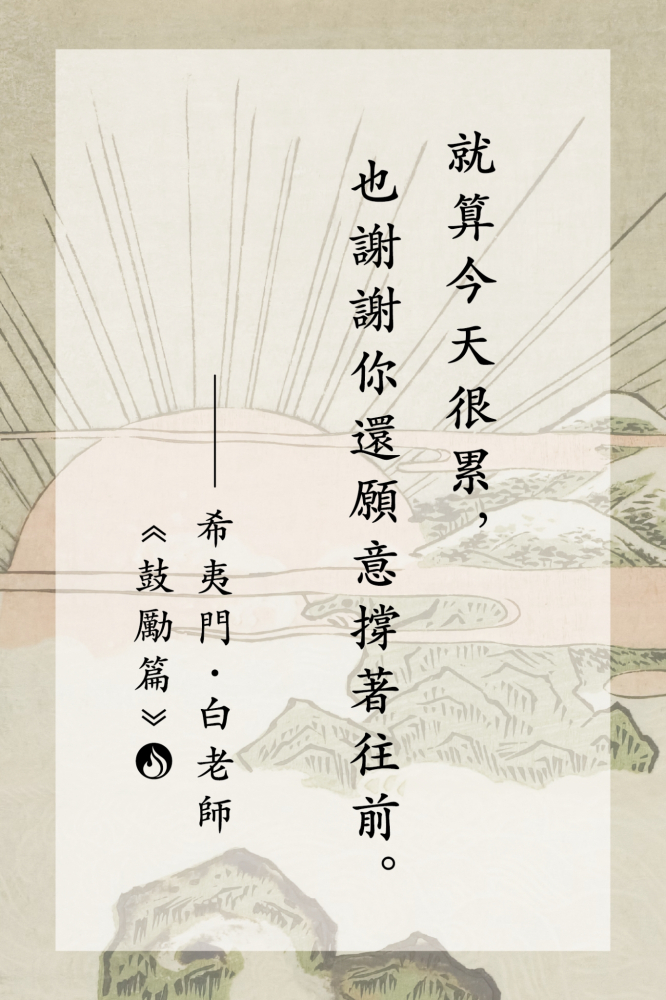 就算今天很累，
也謝謝你還願意撐著往前。
——希夷門·白老師
《鼓勵篇》